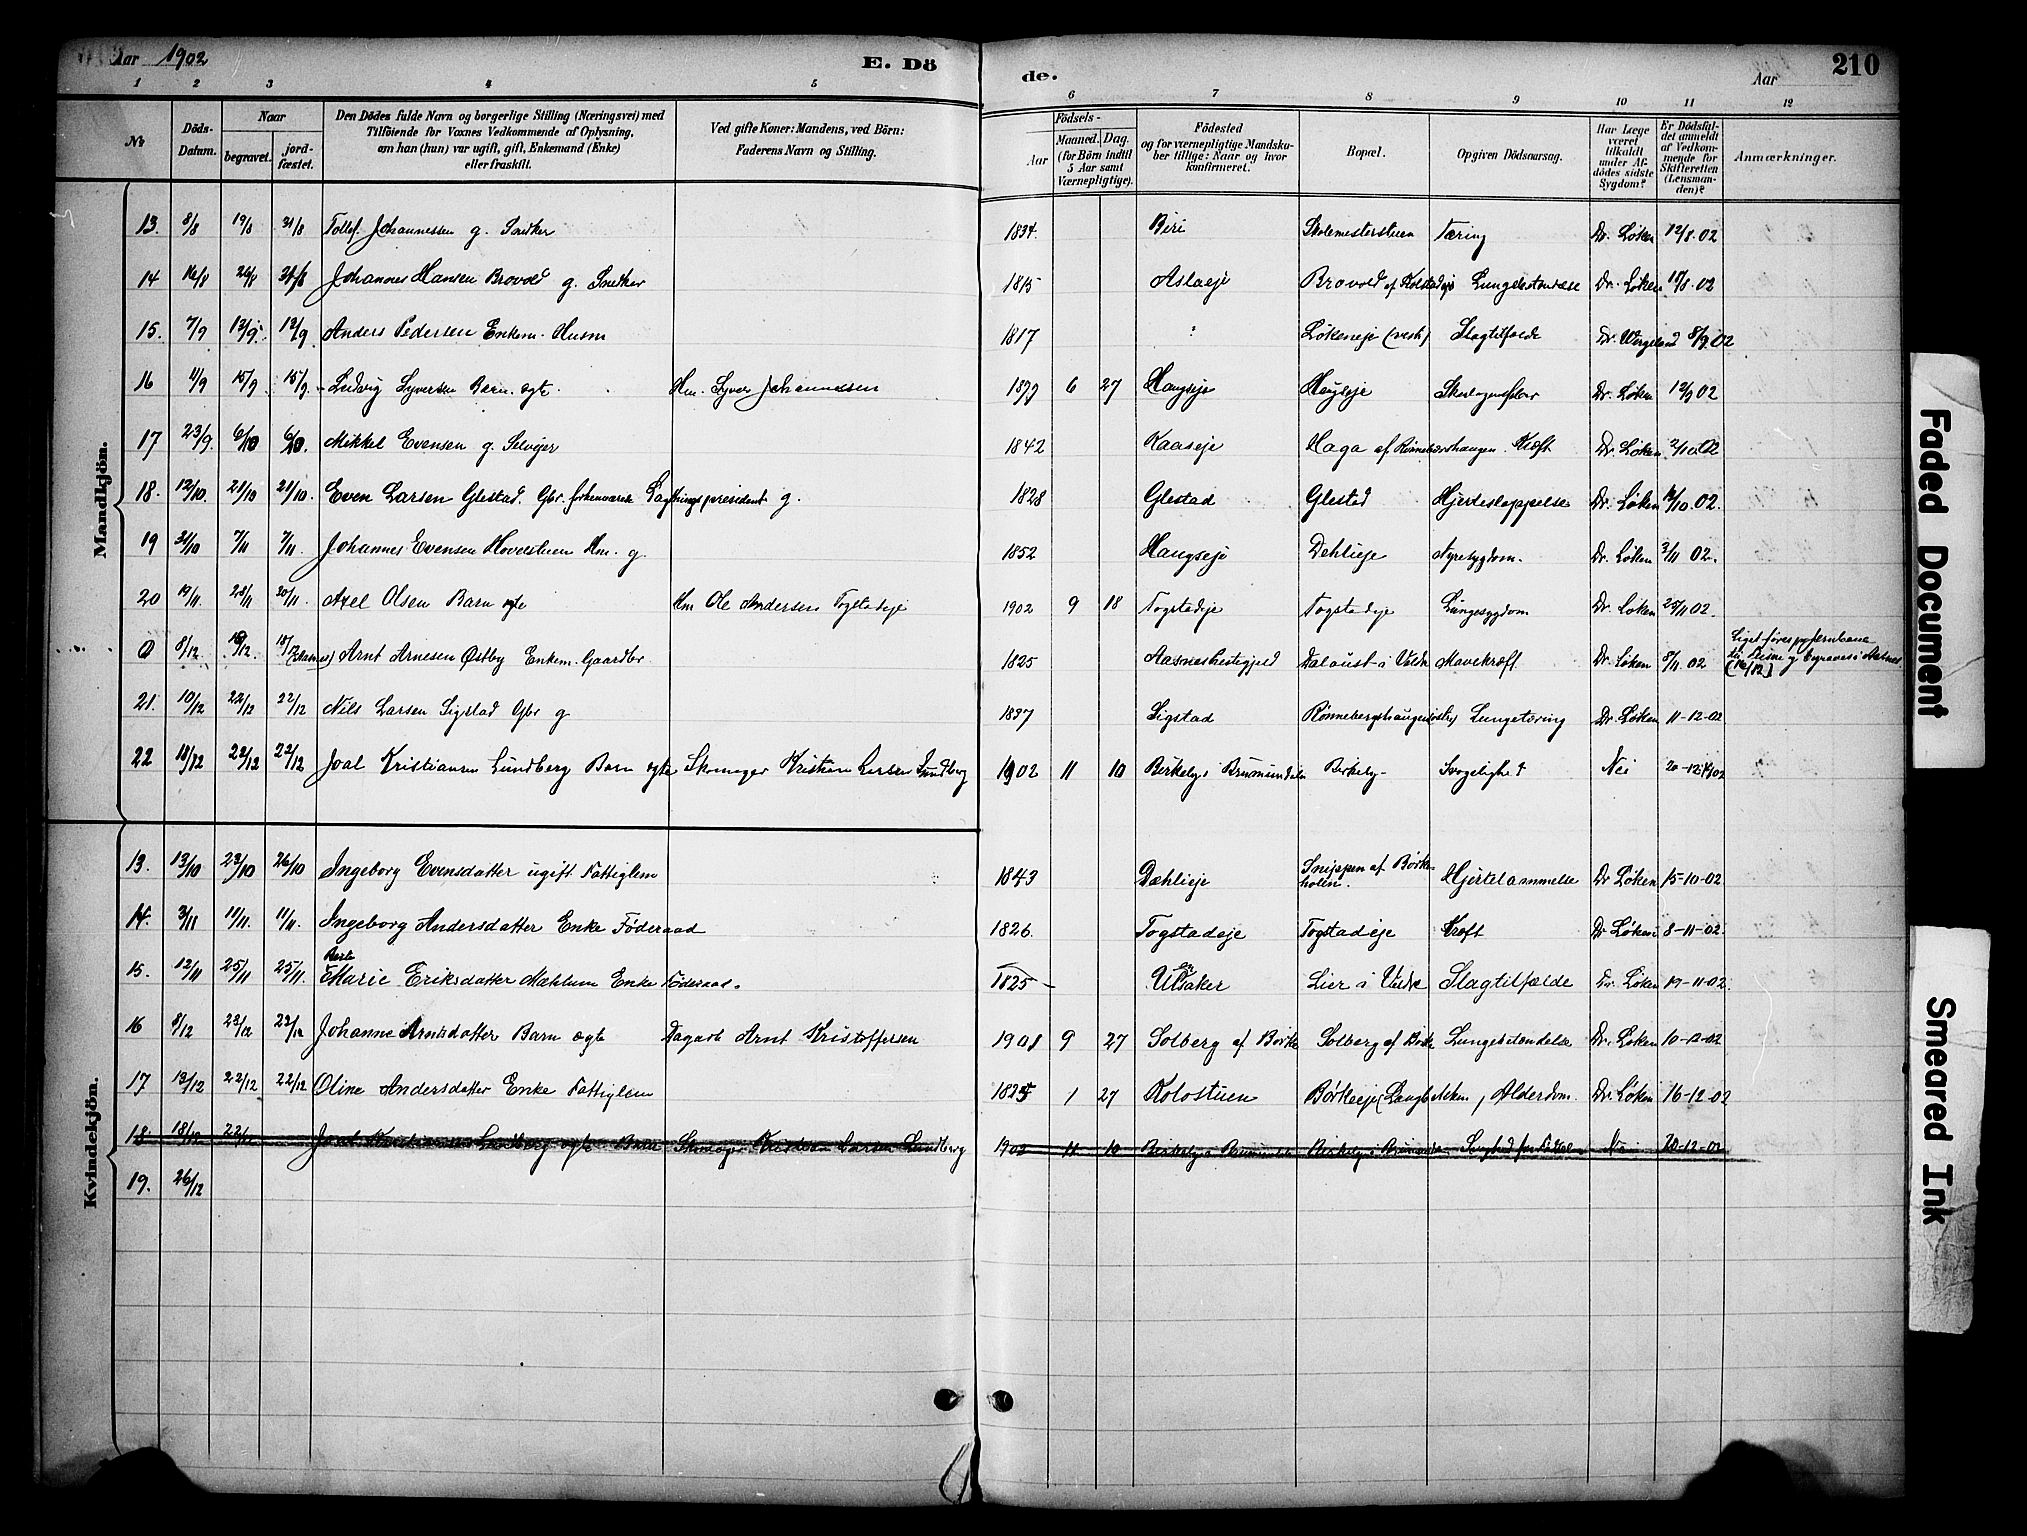 Aar 1902
E. Dö
de.
Aar
210
1 2 3 4 5 6 7 8 9 10 11 12
No
Döds-Datum.
Naar
begravet.
jordfæstet.
Den Dödes fulde Navn og borgerlige Stilling (Næringsvei) med
Tilføiende for Voxnes Vedkommende af Oplysning,
om han (hun) var ugift, gift, Enkemand (Enke)
eller fraskilt.
Ved gifte Koner: Mandens, ved Börn:
Faderens Navn og Stilling.
Födsels-
Aar
Maaned. Dag.
(for Börn indtil
5 Aar samt
Værnepligtige).
Födested
og for værnepligtige Mandskaber tillige: Naar og hvor
konfirmeret.
Bopæl.
Opgiven Dödsaarsag.
Har Læge
været
tilkaldt
under Afdödes sidste
Sygdom?
Er Dödsfaldet anmeldt
af Vedkommende for
Skifteretten
(Lensmanden)?
Anmærkninger.
Mandkjön.
13. 8/8 19/8 31/8 Tollef Johannessen g. Snedker 1834. Biri Skolemesterstuen Tæring Dr. Løken 12/8 02
14 16/8 26/8 31/8 Johannes Hansen Brovold g. Snedker 1815 Aslaeje Brovold af Lungebetændelse Dr. Løken 18/8 02
15. 7/9 12/9 12/9 Anders Pedersen Enkem. Husm 1817 Løkeneje (vestr) Slagtilfælde Dr. Wergeland 8/9 02
16 11/9 15/9 15/9 Ludvig Syversen Barn. egte. Hm. Syver Johannessen 1899 6 27 Haugseje Haugseje Dr. Løken 12/9 02
17 23/9 6/10 6/10. Mikkel Evensen g. Selvejer 1842 Kaaseje Haga af Kræft Dr. Løken 2/10 02
18. 12/10. 21/10 21/10. Even Larsen Glestad. Gbr. forhenværende Lagthingspresident g. 1828 Glestad Glestad Hjerteslappelse Dr. Løken /10 02.
19 31/10 7/11 7/11. Johannes Evensen Hovelstuen Hm. g. 1852 Haugseje Dehlieje Nyresygdom. Dr. Løken 3/11 02.
20 19/11. 28/11 30/11. Axel Olsen Barn egte Hm Ole Andersen Togstadeje 1902 9 18 Togstadeje Togstadeje Lungesygdom Dr. Løken 25/11 02.
0 8/12 /12. 18/12 Arnt Arnesen Østby Enkem. Gaardbr. 1825 Dalaust i Vdr. Mavekræft Dr. Løken 8/11 02
21. 10/12 22/12 22/12 Nils Larsen Sigstad Gbr g 1837 Sigstad Lungetæring Dr. Løken 11-12-02
22 18/12 22/12 22/12 Joal Kristiansen Lundberg Barn egte Skomager Kristian Larsen Lundberg 1902 11 10 Birkely i Brumunddalen Birkely Svagelighed Nei 20-12-1902
Kvindekjön.
13. 13/10 23/10 26/10 Ingeborg Evensdatter ugift Fattiglem 1843 Dæhlieje Snippen af Hjertelammelse Dr Løken 15-10-02
14. 3/11 11/11. 11/11. Ingeborg Andersdatter Enke Føderaad 1826. Togstadeje Togstadeje Kræft Dr Løken 8-11-02.
15. 12/11 25/11 25/11. Marie Eriksdatter Mæhlum Enke Føderaad. 1825 - Ulsaker Lier i Vdr Slagtilfælde Dr. Løken 19-11-02.
16 8/12 23/12 22/12 Johanne Arntsdatter Barn egte Dagarb Arnt Kristoffersen 1901 9 27 Solberg af Børke Solberg af Børke Lungebetændelse Dr. Løken 10-12-02
17 13/12 22/12 22/12 Oline Andersdatter Enke Fattiglem 1825 1 27 Kolostuen Børkeeje Alderdom. Dr. Løken 16-12-02
18 18/12 22/12 Joal Kristiansen Lundberg egte Barn Skomager Kristian Larsen Lundberg 1902 11 10 Birkely i Brumunddalen Birkely i Brumunddalen Nei 20-12-02
19. 26/12
Faded Document
Smeared Ink